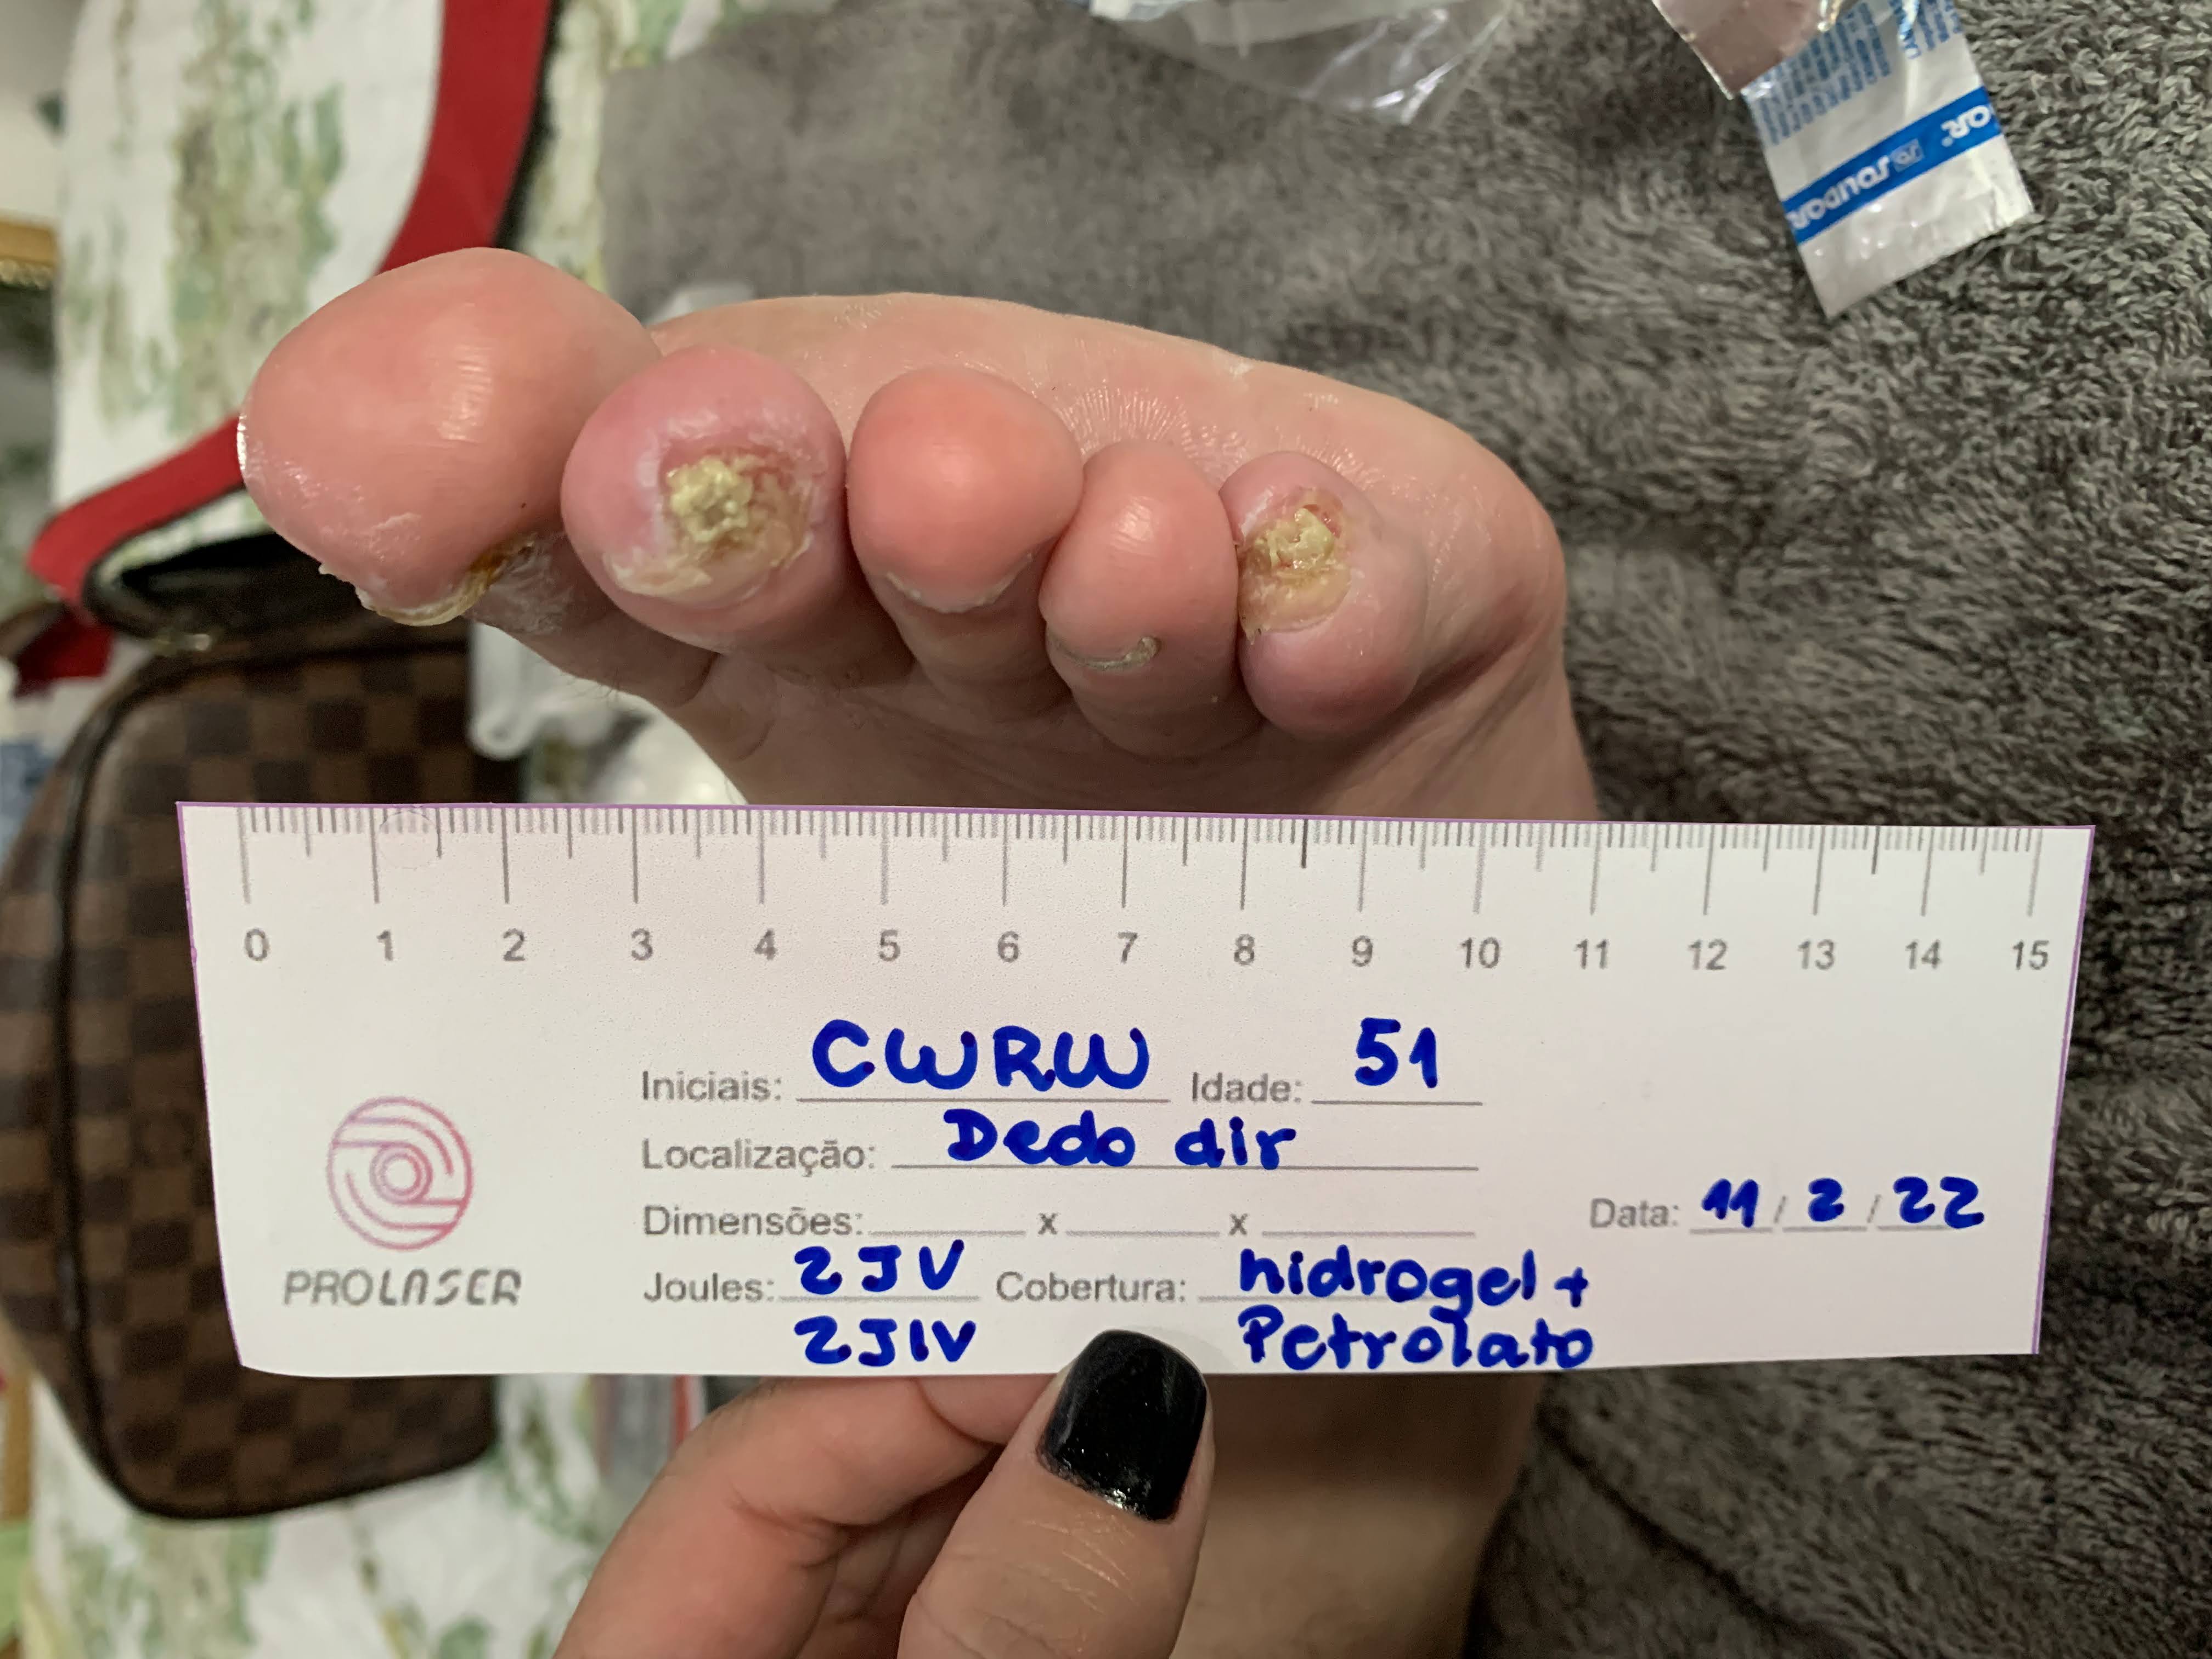 0 1 2 3 4 5 6 7 8 9 10 11 12 13 14 15
PROLASER
Iniciais: CWRW Idade: 51
Localização: Dedo dir
Dimensões: x x Data: 11/2/22
Joules: 2JV Cobertura: hidrogel +
2JIV Petrolato